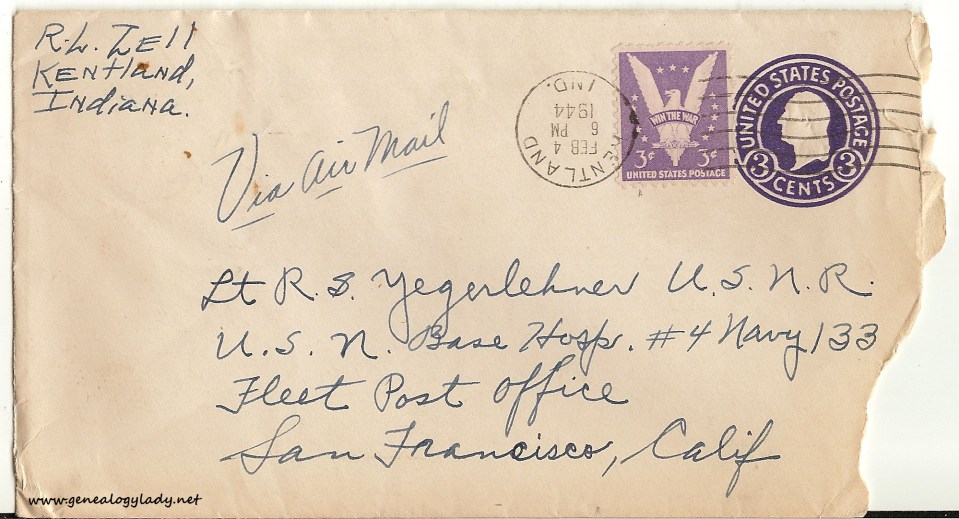 R. L. Zell
Kentland,
Indiana.
Via Air Mail
KENTLAND
FEB 4
6 PM
1944
IND.
WIN THE WAR
3¢ 3¢
UNITED STATES POSTAGE
UNITED STATES POSTAGE
3 CENTS 3
Lt R. S. Yegerlehner U. S. N. R.
U. S. N. Base Hosp. #4 Navy 133
Fleet Post Office
San Francisco, Calif
www.genealogylady.net